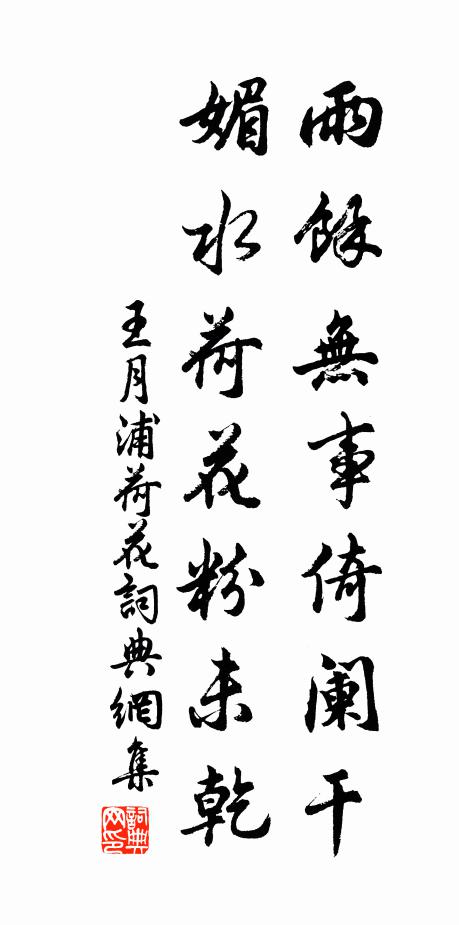 雨餘無事倚阑干
媚水荷花粉未乾
王月浦荷花詞典網集
詞典網印